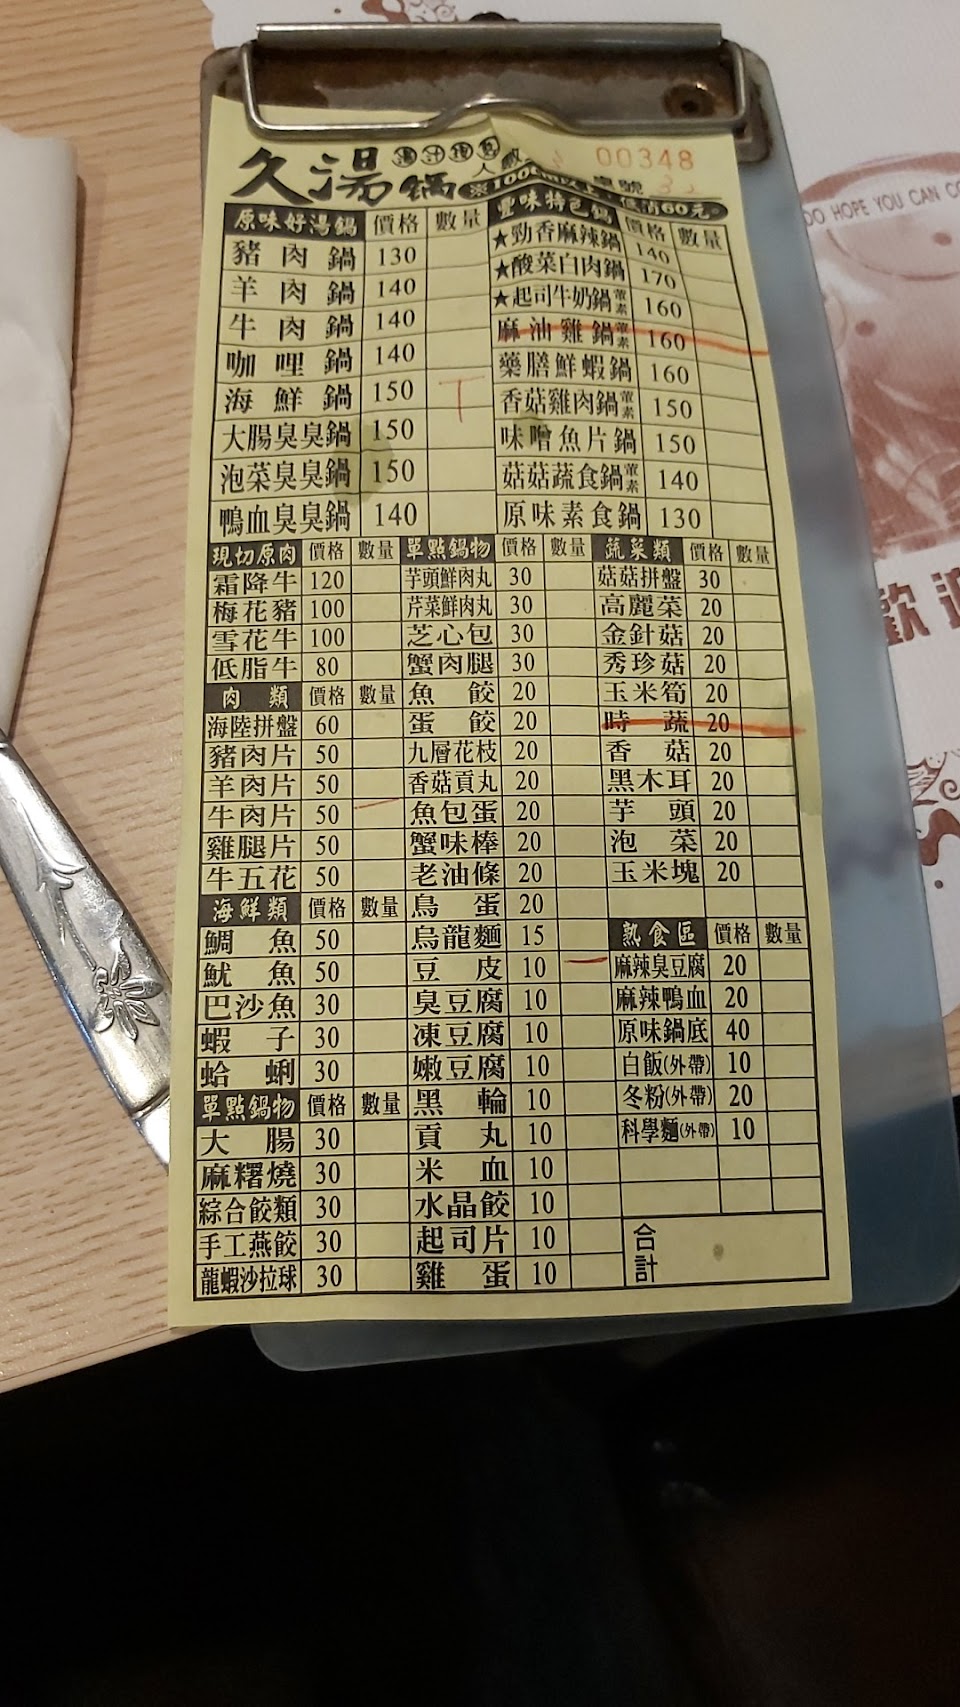 久湯鍋 湯汁 人數 00348
※100 桌號 32
60元。
原味好湯鍋 價格 數量
豬肉鍋 130
羊肉鍋 140
牛肉鍋 140
咖哩鍋 140
海鮮鍋 150 T
大腸臭臭鍋 150
泡菜臭臭鍋 150
鴨血臭臭鍋 140
豐味特色鍋 價格 數量
★勁香麻辣鍋 140
★酸菜白肉鍋 170
★起司牛奶鍋葷素 160
麻油雞鍋葷素 160
藥膳鮮蝦鍋 160
香菇雞肉鍋葷素 150
味噌魚片鍋 150
菇菇蔬食鍋葷素 140
原味素食鍋 130
現切原肉 價格 數量
霜降牛 120
梅花豬 100
雪花牛 100
低脂牛 80
肉類 價格 數量
海陸拼盤 60
豬肉片 50
羊肉片 50
牛肉片 50
雞腿片 50
牛五花 50
海鮮類 價格 數量
鯛魚 50
魷魚 50
巴沙魚 30
蝦子 30
蛤蜊 30
單點鍋物 價格 數量
大腸 30
麻糬燒 30
綜合餃類 30
手工燕餃 30
龍蝦沙拉球 30
單點鍋物 價格 數量
芋頭鮮肉丸 30
芹菜鮮肉丸 30
芝心包 30
蟹肉腿 30
魚餃 20
蛋餃 20
九層花枝 20
香菇貢丸 20
魚包蛋 20
蟹味棒 20
老油條 20
鳥蛋 20
烏龍麵 15
豆皮 10
臭豆腐 10
凍豆腐 10
嫩豆腐 10
黑輪 10
貢丸 10
米血 10
水晶餃 10
起司片 10
雞蛋 10
蔬菜類 價格 數量
菇菇拼盤 30
高麗菜 20
金針菇 20
秀珍菇 20
玉米筍 20
時蔬 20
香菇 20
黑木耳 20
芋頭 20
泡菜 20
玉米塊 20
熟食區 價格 數量
麻辣臭豆腐 20
麻辣鴨血 20
原味鍋底 40
白飯(外帶) 10
冬粉(外帶) 20
科學麵(外帶) 10
合計
DO HOPE YOU CAN CO
歡迎